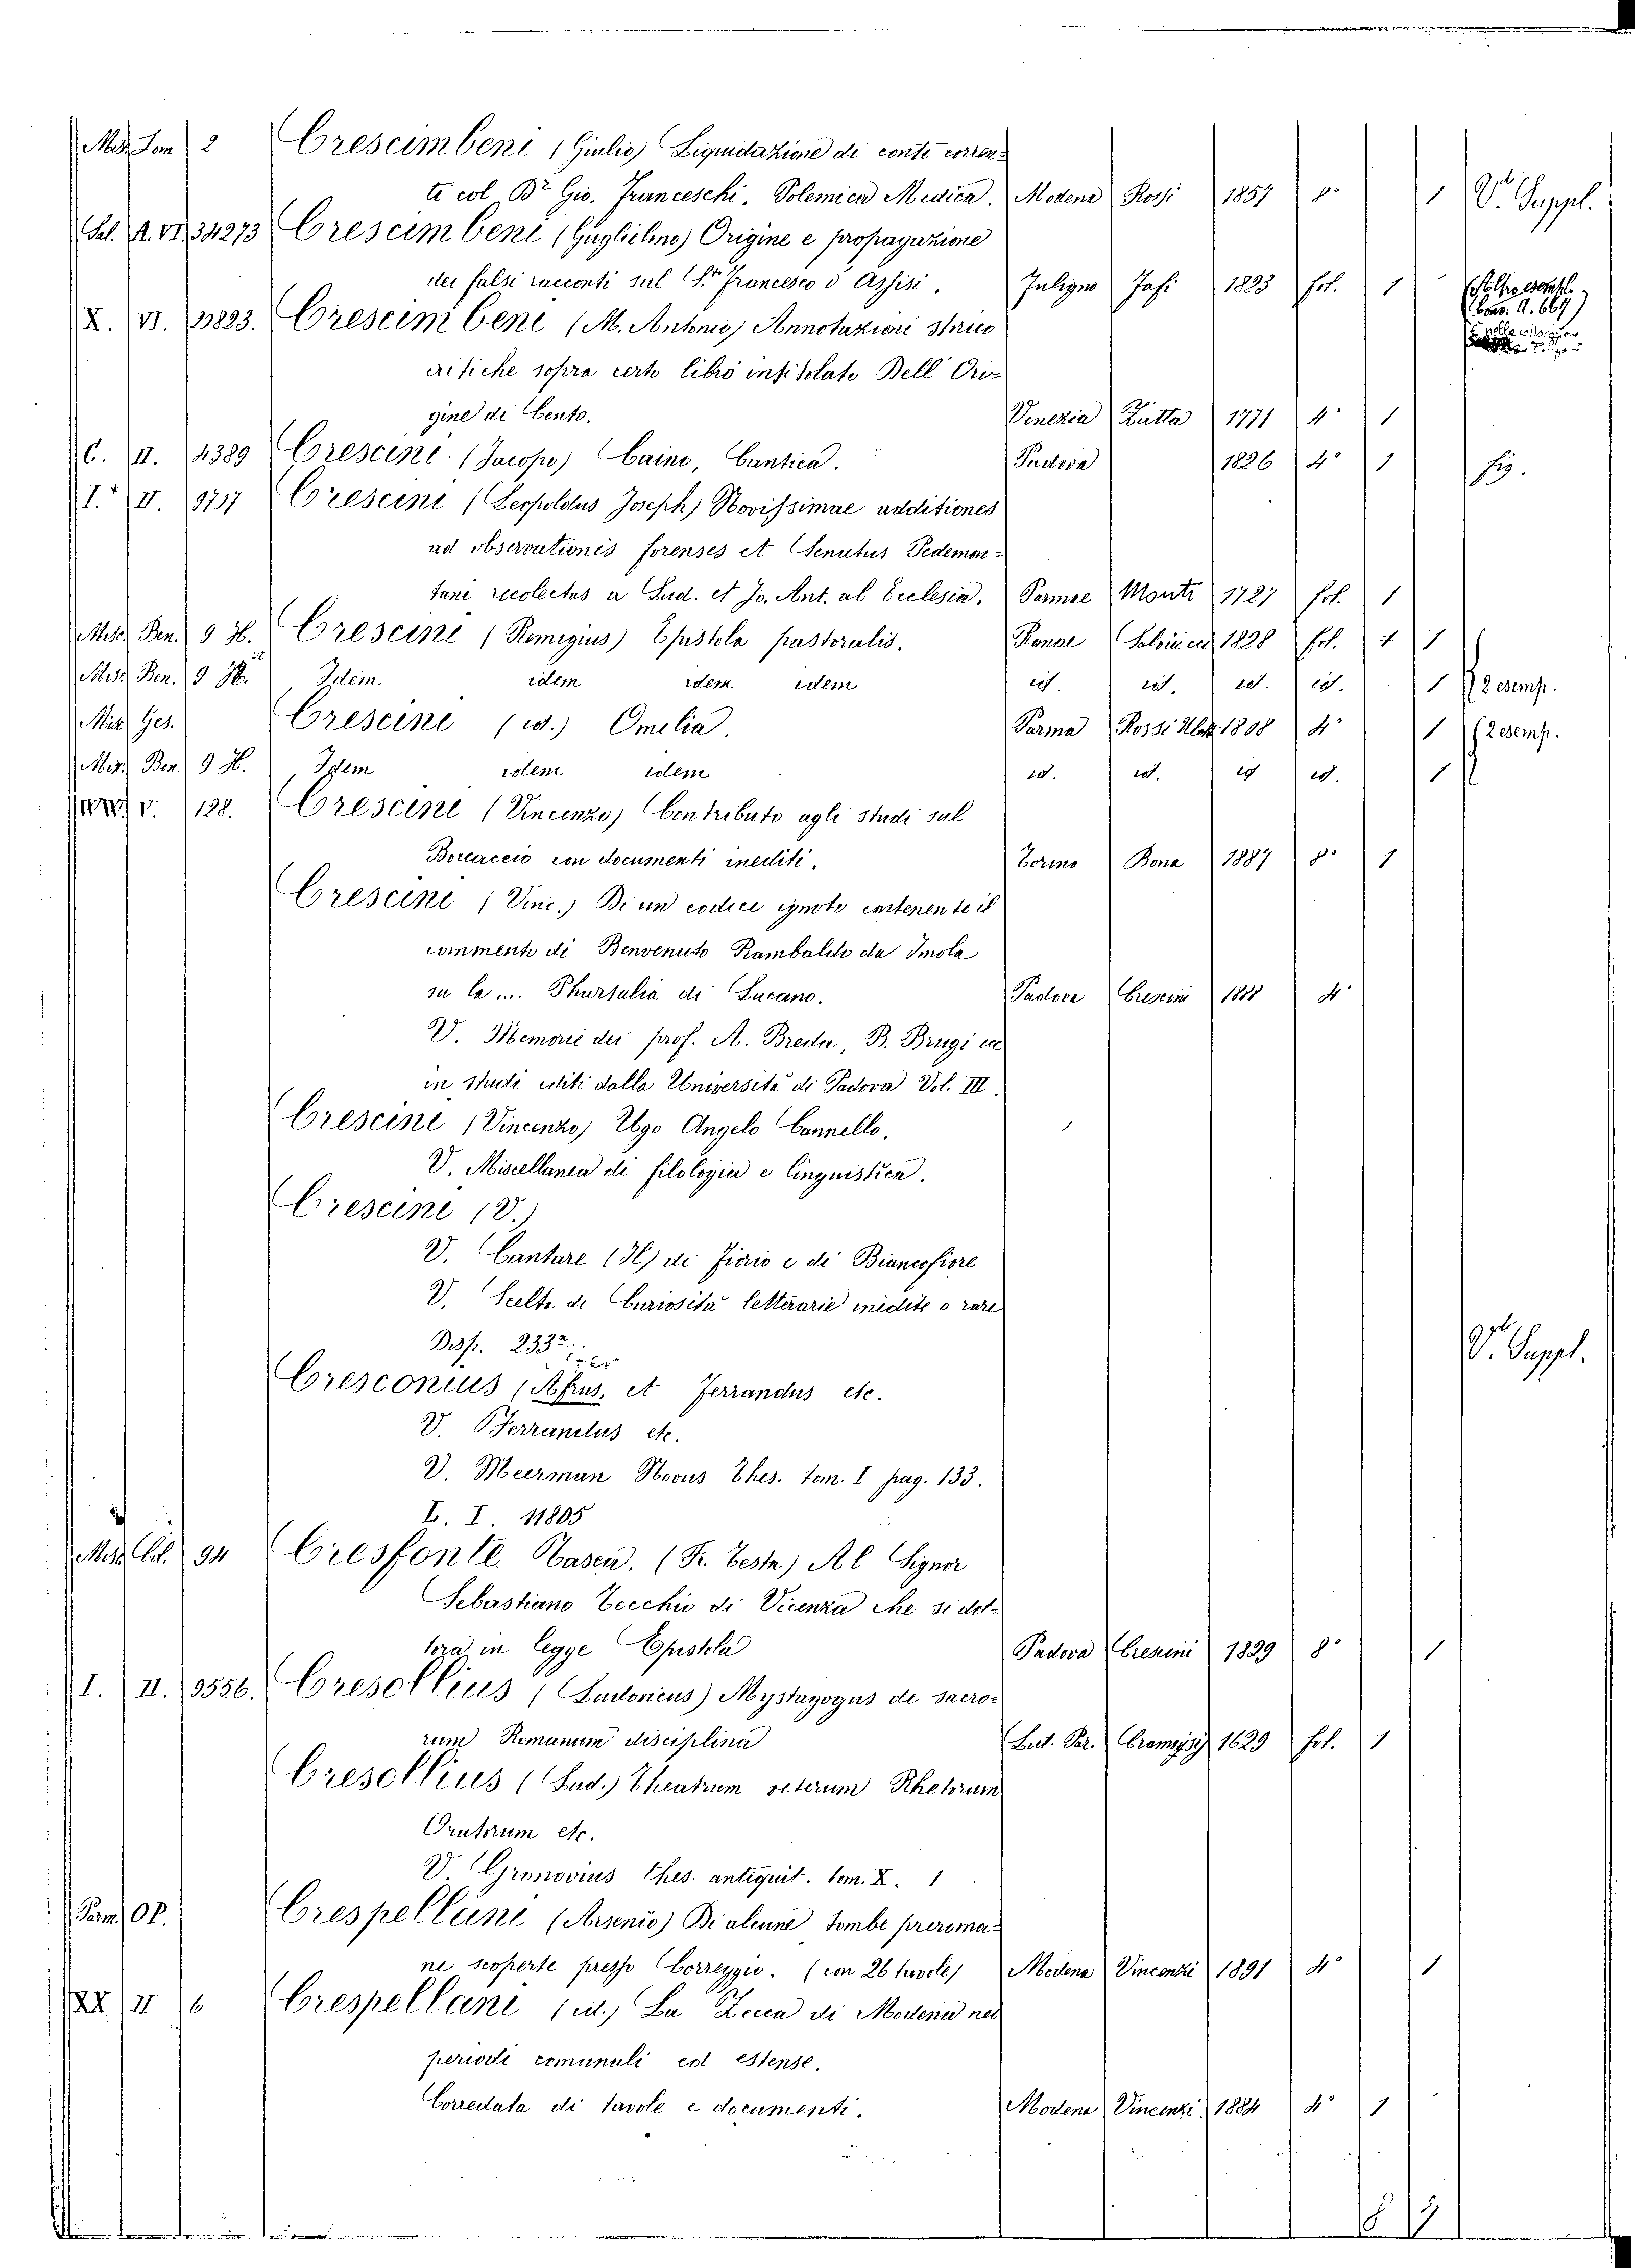 2 Crescimbeni (Giulio) Liquidazione di conti corren=
ti col Dr Gio. Franceschi. Polemica Medica. Modena Rossi 1857 8° 1 V. Suppl.
Sal. A. VI. 34273 Crescimbeni (Guglielmo) Origine e propagazione
dei falsi racconti sul Sn Francesco d'Assisi. Fuligno 1823 fol. 1
X. VI. 33823. Crescimbeni (M. Antonio) Annotazioni storico
critiche sopra certo libro intitolato Dell' Ori=
gine di Cento. Venezia Zatta 1771 4° 1
C. II. 4389 Crescini (Jacopo) Caino, Cantica. Padova 1826 4° 1 fig.
I. II. 9757 Crescini (Leopoldus Joseph) Novissimae additiones
ad observationis forenses et Senatus Pedemon=
tani recolectas a Lud. et Jo. Ant. ab Ecclesia. Parmae Monti 1727 fol. 1
Misc. Ben. 9 H. Crescini (Remigius) Epistola pastoralis. 1828 fol. 1
Misc. Ben. 9 H. Idem idem idem idem id. id. id. id. 1 2 esemp.
Misc. Ges. Crescini (id.) Omelia. Parma Rossi 1808 4° 1 2 esemp.
Misc. Ben. 9 H. Idem idem idem id. id. id id. 1
V. 128. Crescini (Vincenzo) Contributo agli studi sul
Boccaccio con documenti inediti. Torino Bona 1887 8° 1
Crescini (Vinc.) Di un codice ignoto contenente il
commento di Benvenuto Rambaldo da Imola
su la .... Pharsalia di Lucano. Padova Crescini 1888 4°
V. Memorie dei prof. A. Breda, B. Brugi ecc
in studi editi dalla Università di Padova Vol. III.
Crescini (Vincenzo) Ugo Angelo Cannello.
V. Miscellanea di filologia e linguistica.
Crescini (V.)
V. Cantare (Il) di Fiorio e di Biancofiore
V. Scelta di Curiosità letterarie inedite o rare
Disp. 233a V. Suppl.
Cresconius (Afrus, et Ferrandus etc.
V. Ferrandus etc.
V. Meerman Novus Thes. tom. I pag. 133.
L. I. 11805
94 Cresfonte Nasea. (Fr. Testa) Al Signor
Sebastiano Tecchio di Vicenza che si dot=
tora in legge Epistola Padova Crescini 1829 8° 1
I. II. 9556. Cresollius (Ludovicus) Mystagogus de sacro=
rum Romanum disciplina Lut. Par. Cramoisy 1629 fol. 1
Cresollius (Lud.) Theatrum veterum Rhetorum
Oratorum etc.
V. Gronovius Thes. antiquit. tom. X. 1
Crespellani (Arsenio) Di alcune tombe preroma=
ne scoperte presso Correggio. (con 26 tavole) Modena Vincenzi 1891 4° 1
XX II 6 Crespellani (id.) La Zecca di Modena nei
periodi comunali ed estense.
Corredata di tavole e documenti. Modena Vincenzi 1884 4° 1